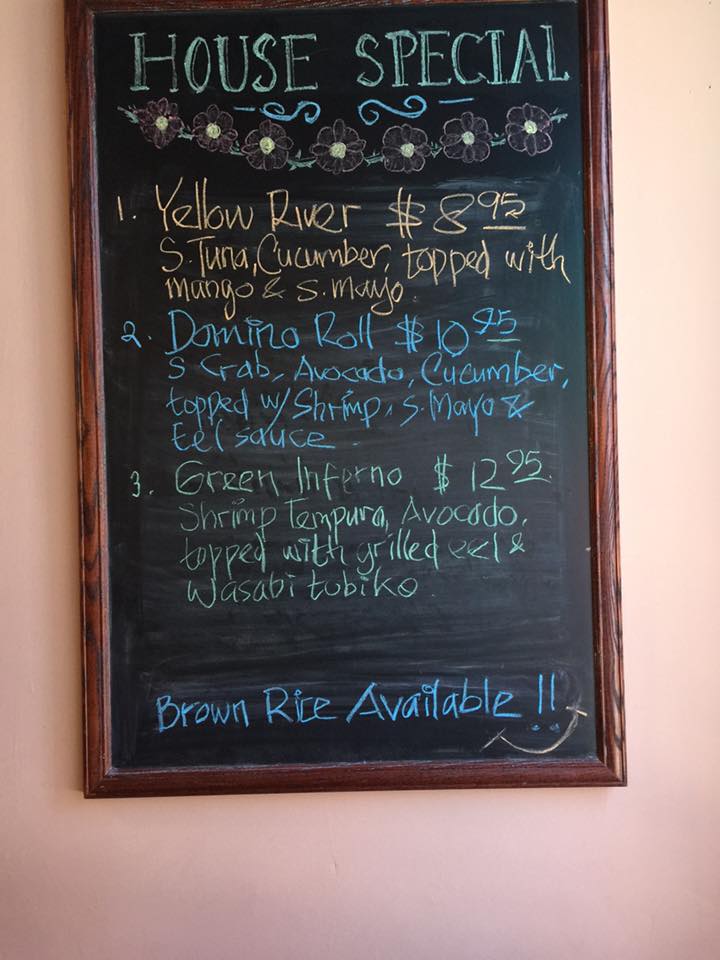 HOUSE SPECIAL
1. Yellow River $8.95
S. Tuna, Cucumber, topped with
mango & S. mayo.
2. Domino Roll $10.95
S Crab, Avocado, Cucumber,
topped w/ Shrimp, S. Mayo &
Eel sauce
3. Green Inferno $12.95
Shrimp Tempura, Avocado,
topped with grilled eel &
Wasabi tobiko.
Brown Rice Available !!